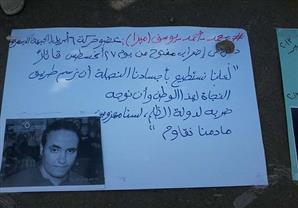 # محمد أحمد يوسف (ميزا): عضو حركة ٦ أبريل الجبهة
إضراب مفتوح من يوم ٢٧ أغسطس قائلاً
"لعلنا نستطيع بأجسادنا النحيلة أن نرسم طريق
النجاة لهذا الوطن وأن نوجه
ضربة لدولة الظلم، لسنا مهزومين
مادمنا نقاوم"